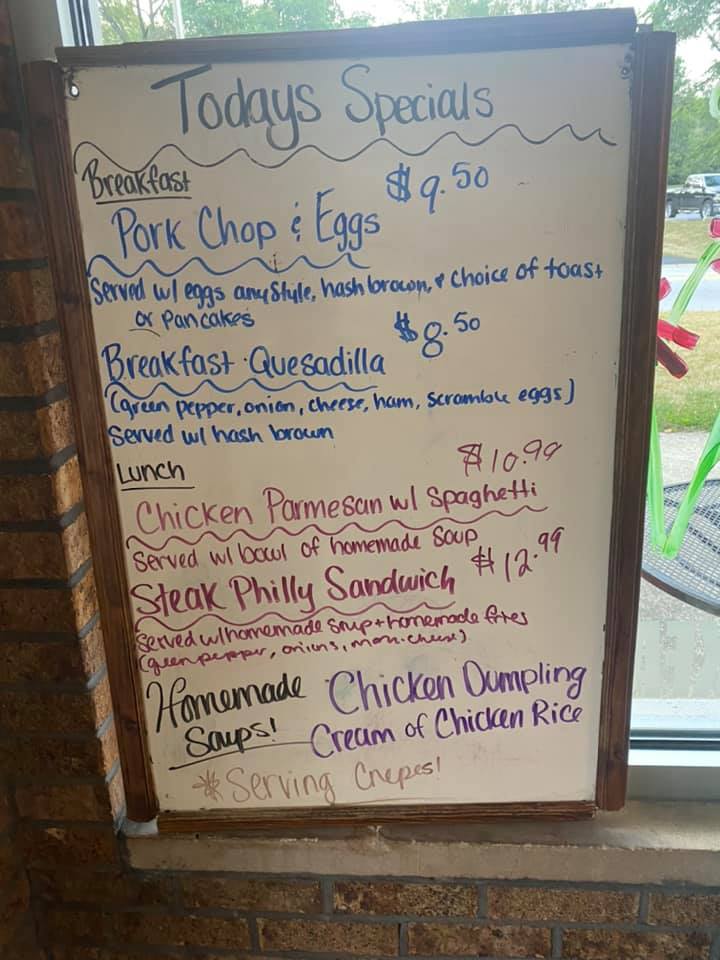 Todays Specials
Breakfast
$9.50
Pork Chop & Eggs
Served w/ eggs any style, hash brown, & choice of toast
or pancakes
$8.50
Breakfast Quesadilla
(green pepper, onion, cheese, ham, scramble eggs)
Served w/ hash brown
Lunch
$10.99
Chicken Parmesan w/ Spaghetti
Served w/ bowl of homemade soup
$12.99
Steak Philly Sandwich
Served w/ homemade soup + homemade fries
(green pepper, onions, mozz. cheese)
Homemade Chicken Dumpling
Soups! Cream of Chicken Rice
*Serving Crepes!